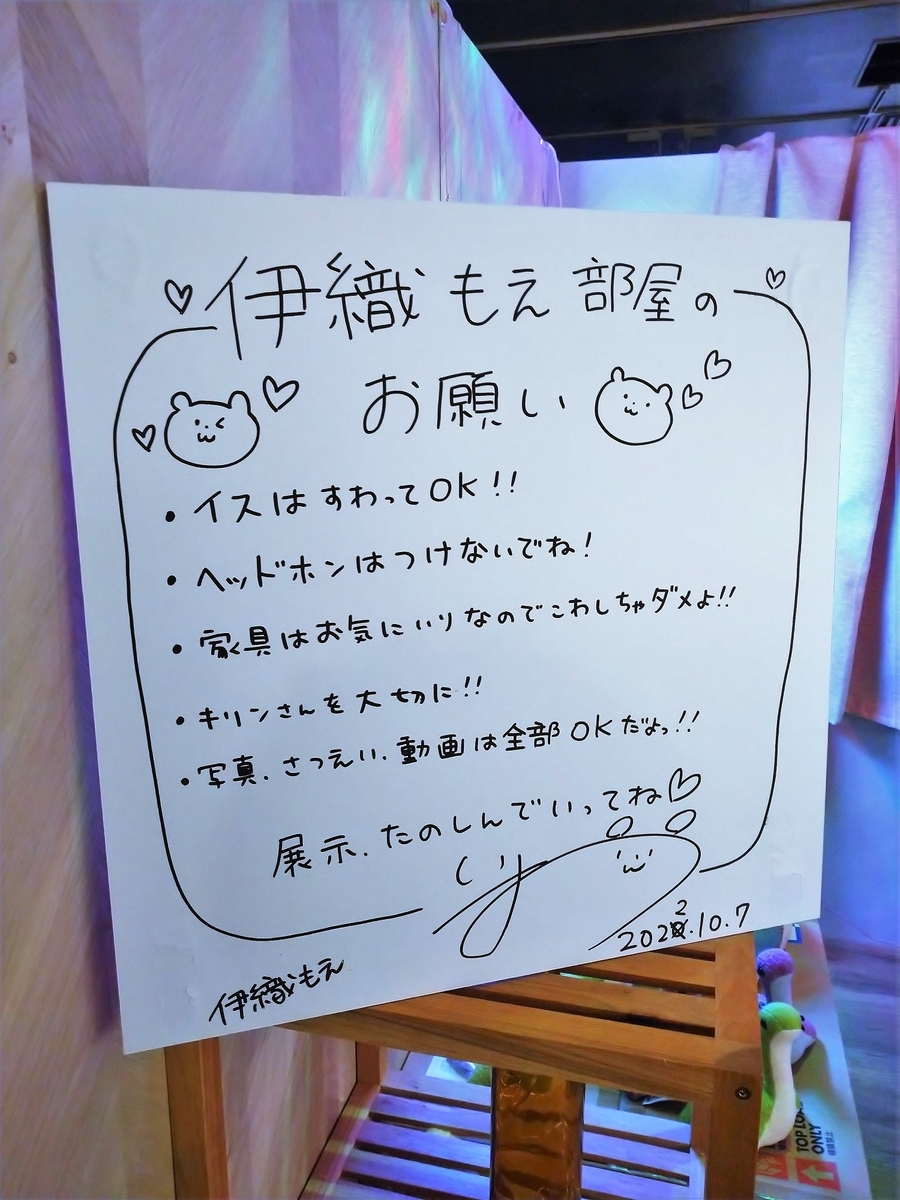 ♡伊織もえ部屋の♡
お願い
・イスはすわってOK!!
・ヘッドホンはつけないでね!
・家具はお気にいりなのでこわしちゃダメよ!!
・キリンさんを大切に!!
・写真、さつえい、動画は全部OKだよっ!!
展示、たのしんでいってね♡
2022.10.7
伊織もえ
TOP LOAD
ONLY